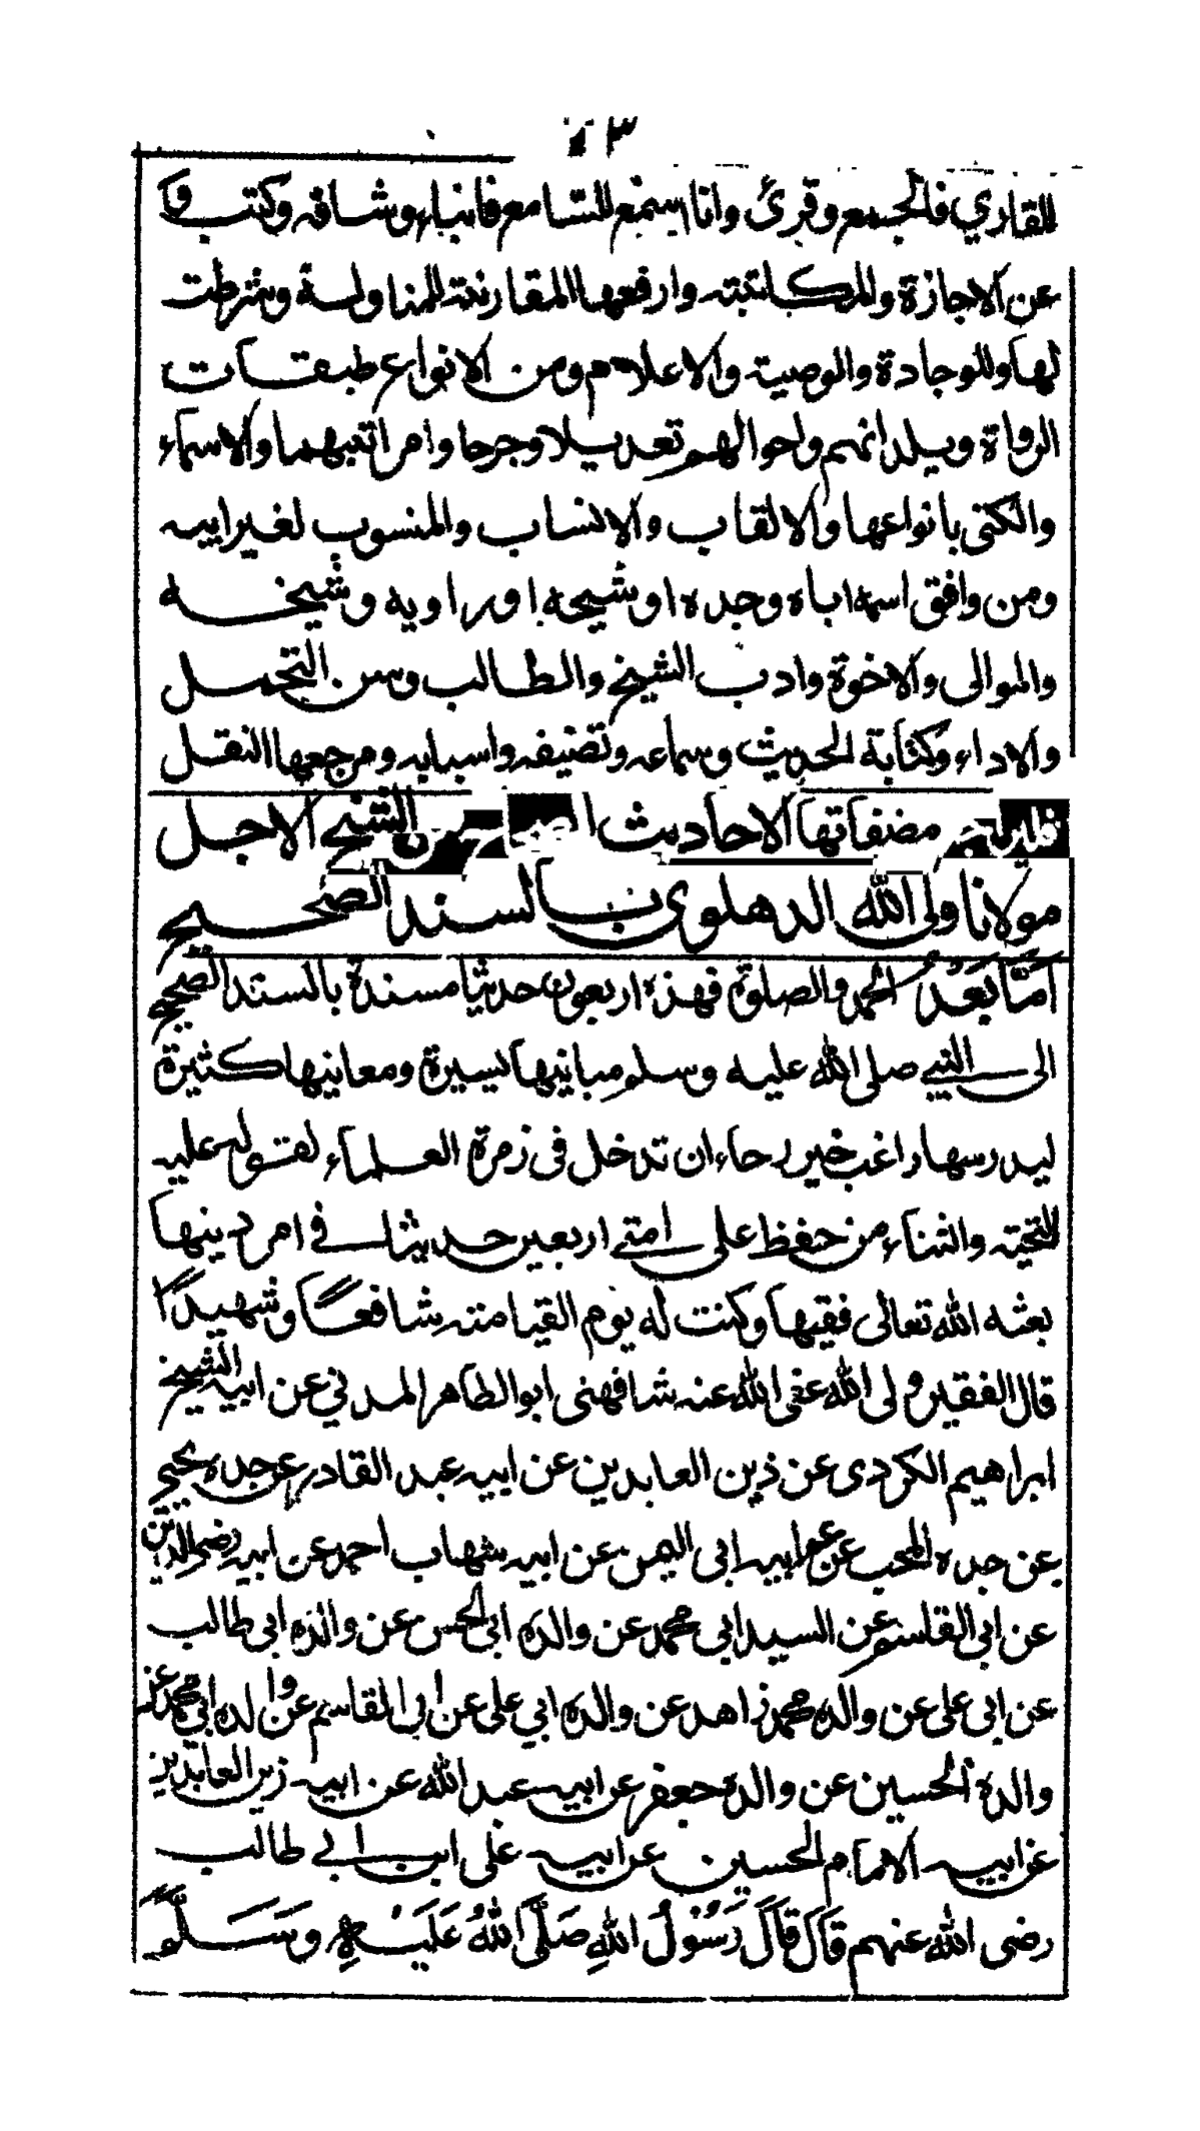 للقاري فالجمع وقرئ وانا اسمع للسامع فانباء وشافه وكتب و
عن الاجازة والمكاتبته وارفعها المقارنة للمناولة وشرطت
لها وللوجادة والوصية والاعلام ومن الانواع طبقات
الرواة وبلدانهم واحوالهم تعديلا وجرحا وامراتبهما والاسماء
والكنى بانواعها والالقاب والانساب والمنسوب لغير ابيه
ومن وافق اسمه اباه وجده او شيخه او راويه وشيخه
والموالى والاخوة وادب الشيخ والطالب وسن التحمل
والاداء وكتابة الحديث وسماعه وتصنيفه واسبابه ومرجعها النقل
مضفاتها الاحاديث الشيخ الاجل
مولانا ولى الله الدهلوى بالسند الصحيح
اَمَّا بَعْدُ الحمد والصلوة فهذه اربعون حديثا مسندة بالسند الصحيح
الى النبي صلى الله عليه وسلم مبانيها يسيرة ومعانيها كثيرة
ليدرسها راغب خير رجاء ان تدخل فى زمرة العلماء لقوله عليه
التحية والثناء من حفظ على امتي اربعين حديثا في امر دينها
بعثه الله تعالى فقيها وكنت له يوم القيامته شافعًا وشهيدًا
قال الفقير ولى الله عفى الله عنه شافهنى ابو الطاهر المدني عن ابيه الشيخ
ابراهيم الكردى عن زين العابدين عن ابيه عبد القادر عن جده يحيى
عن جده المحب عن عم ابيه ابى اليمن عن ابيه شهاب احمد عن ابيه رضى الدين
عن ابى القاسم عن السيد ابى محمد عن والده ابى الحسن عن والده ابى طالب
عن ابى على عن والده محمد زاهد عن والده ابي على عن ابى القاسم عن والده ابي محمد عن
والده الحسين عن والده جعفر عن ابيه عبد الله عن ابيه زين العابدين
عن ابيه الامام الحسين عن ابيه على ابن ابي طالب
رضى الله عنهم قَالَ قَالَ رَسُوْلُ اللهِ صَلَّى اللهُ عَلَيْهِ وَسَلَّمَ